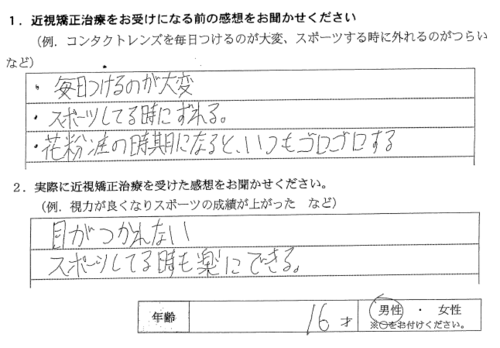 1．近視矯正治療をお受けになる前の感想をお聞かせください
（例．コンタクトレンズを毎日つけるのが大変、スポーツする時に外れるのがつらい
など）
・毎日つけるのが大変
・スポーツしてる時にずれる。
・花粉症の時期になると、いつもゴロゴロする
2．実際に近視矯正治療を受けた感想をお聞かせください。
（例．視力が良くなりスポーツの成績が上がった　など）
目がつかれない
スポーツしてる時も楽にできる。
年齢　16才　男性　・　女性
※○をお付けください。